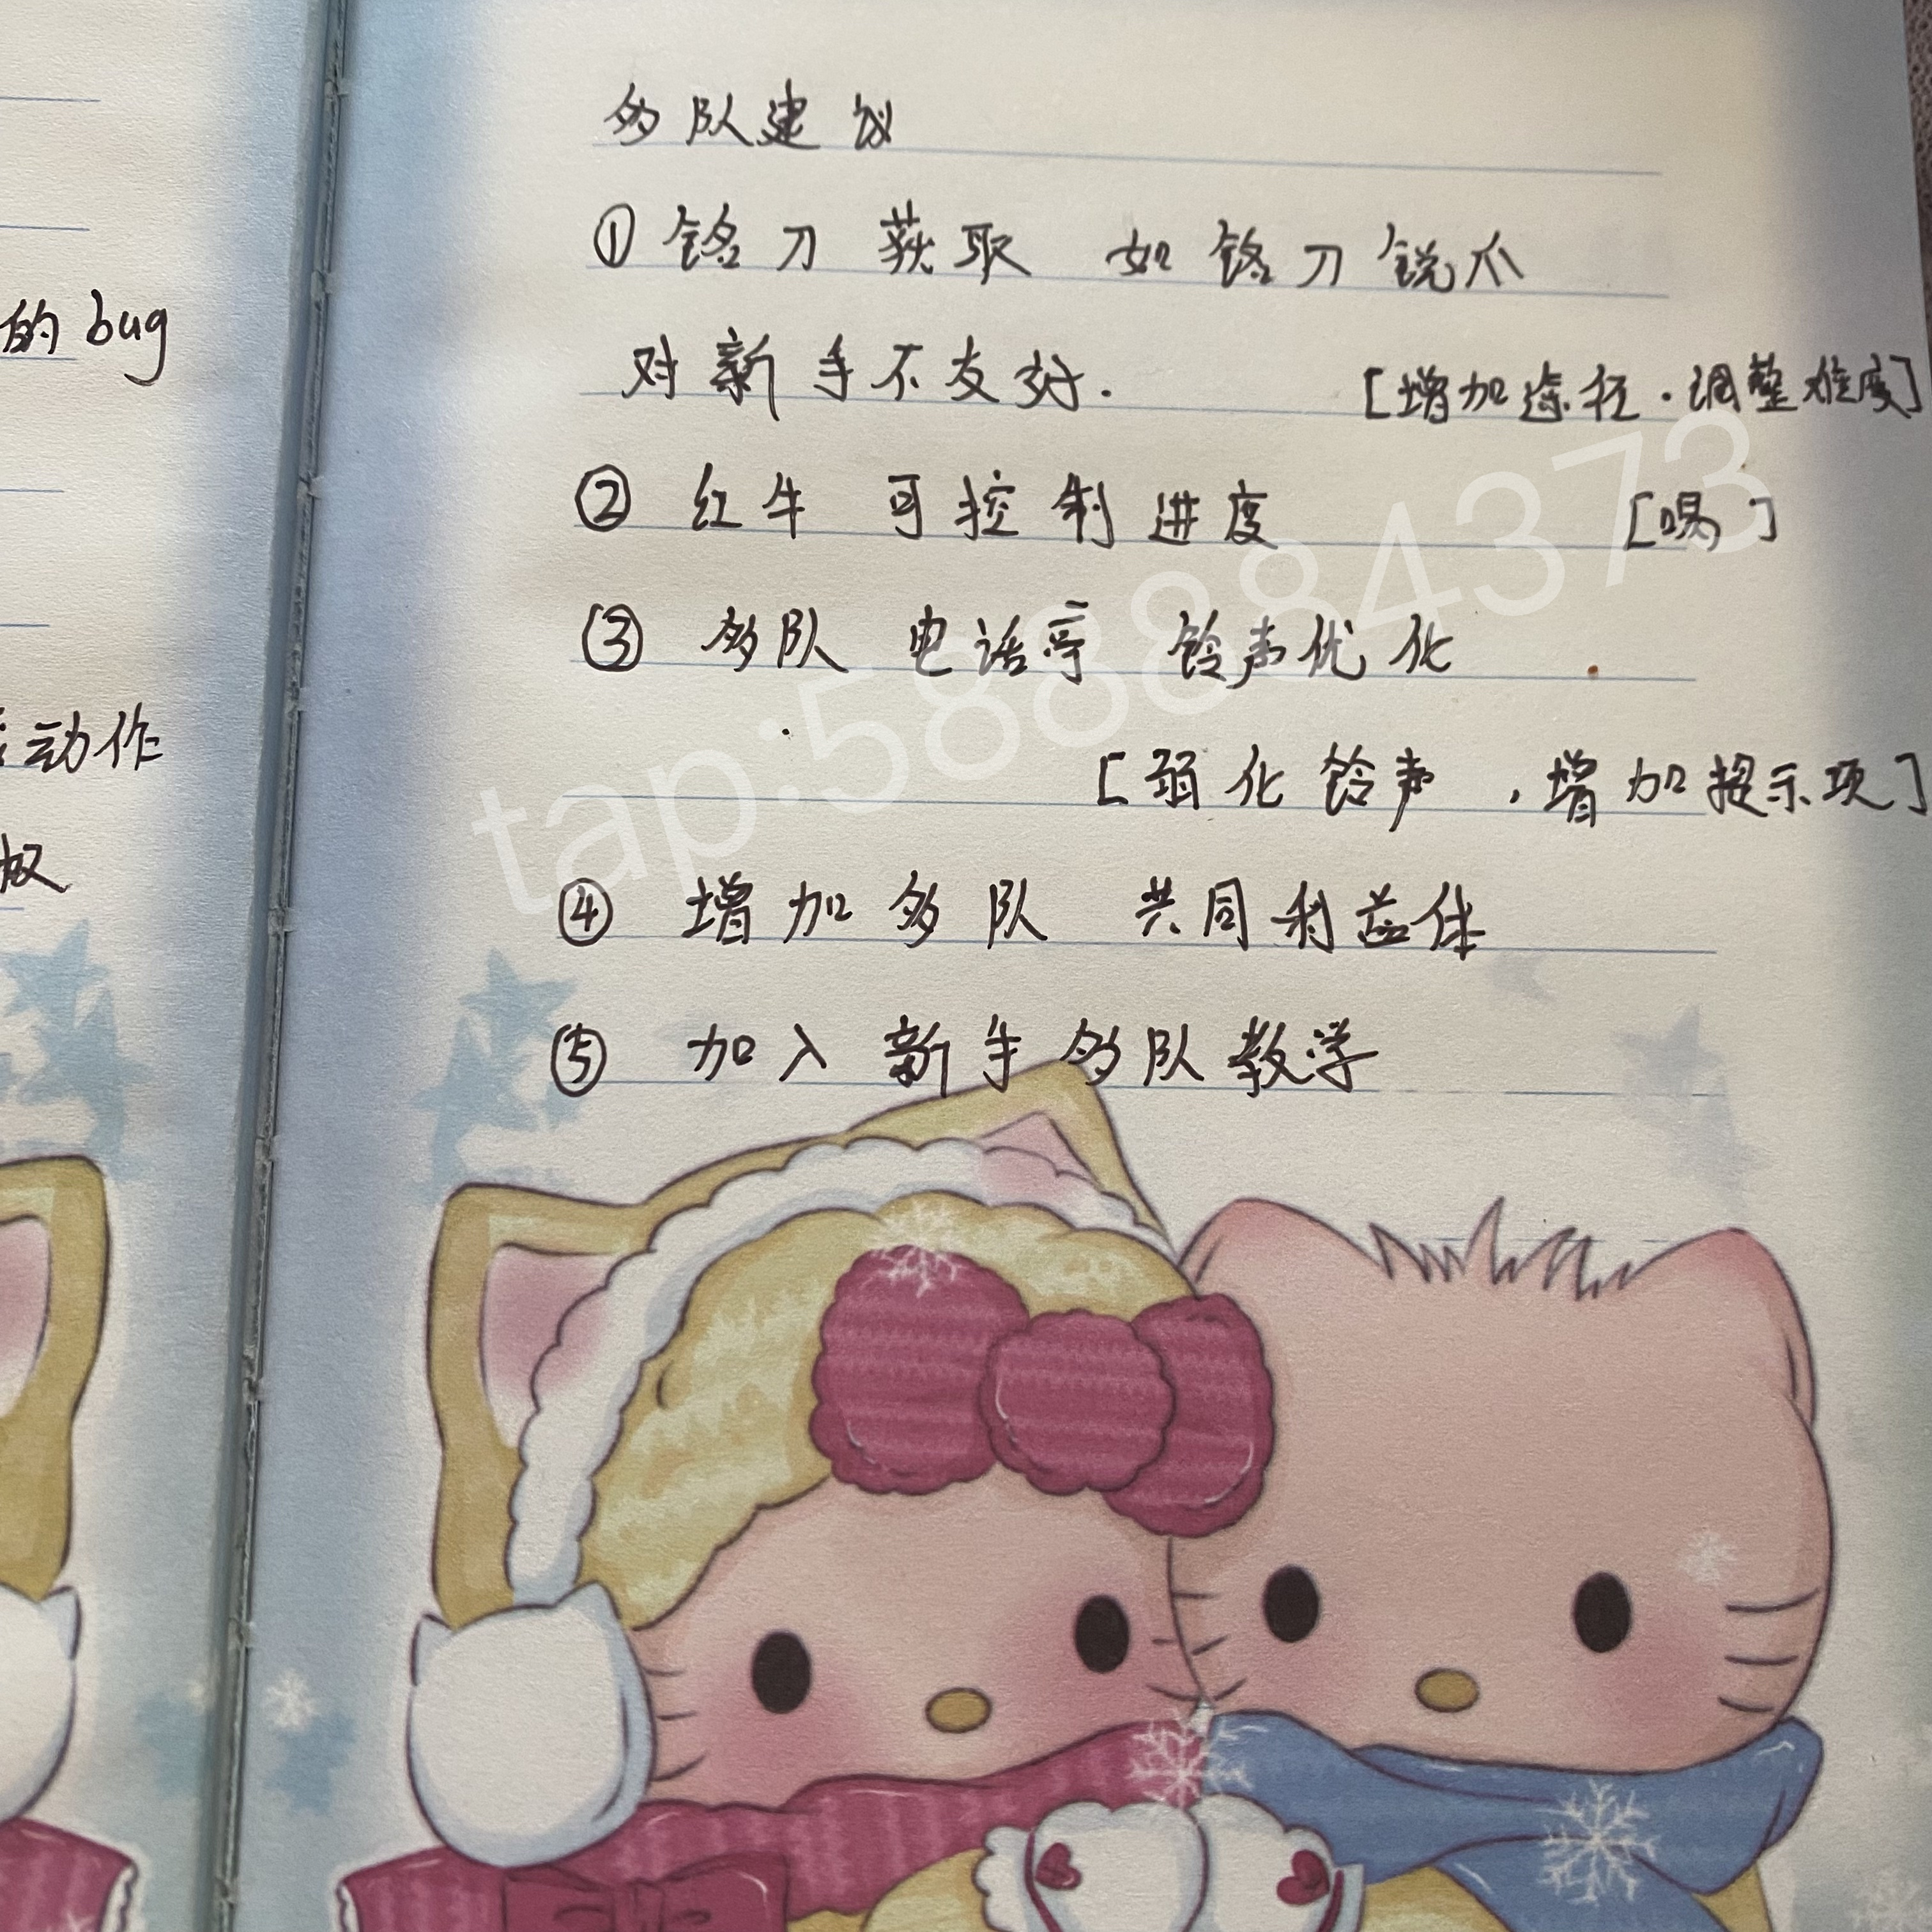 的bug
动作
多队建议
①铭刀 获取 如铭刀锐爪
对新手不友好.
[增加途径.调整难度]
② 红牛 可控制进度 [喝]
③ 多队 电话亭 铃声优化
[弱化铃声,增加提示项]
④ 增加多队 共同利益体
⑤ 加入新手多队教学
tap:58884373